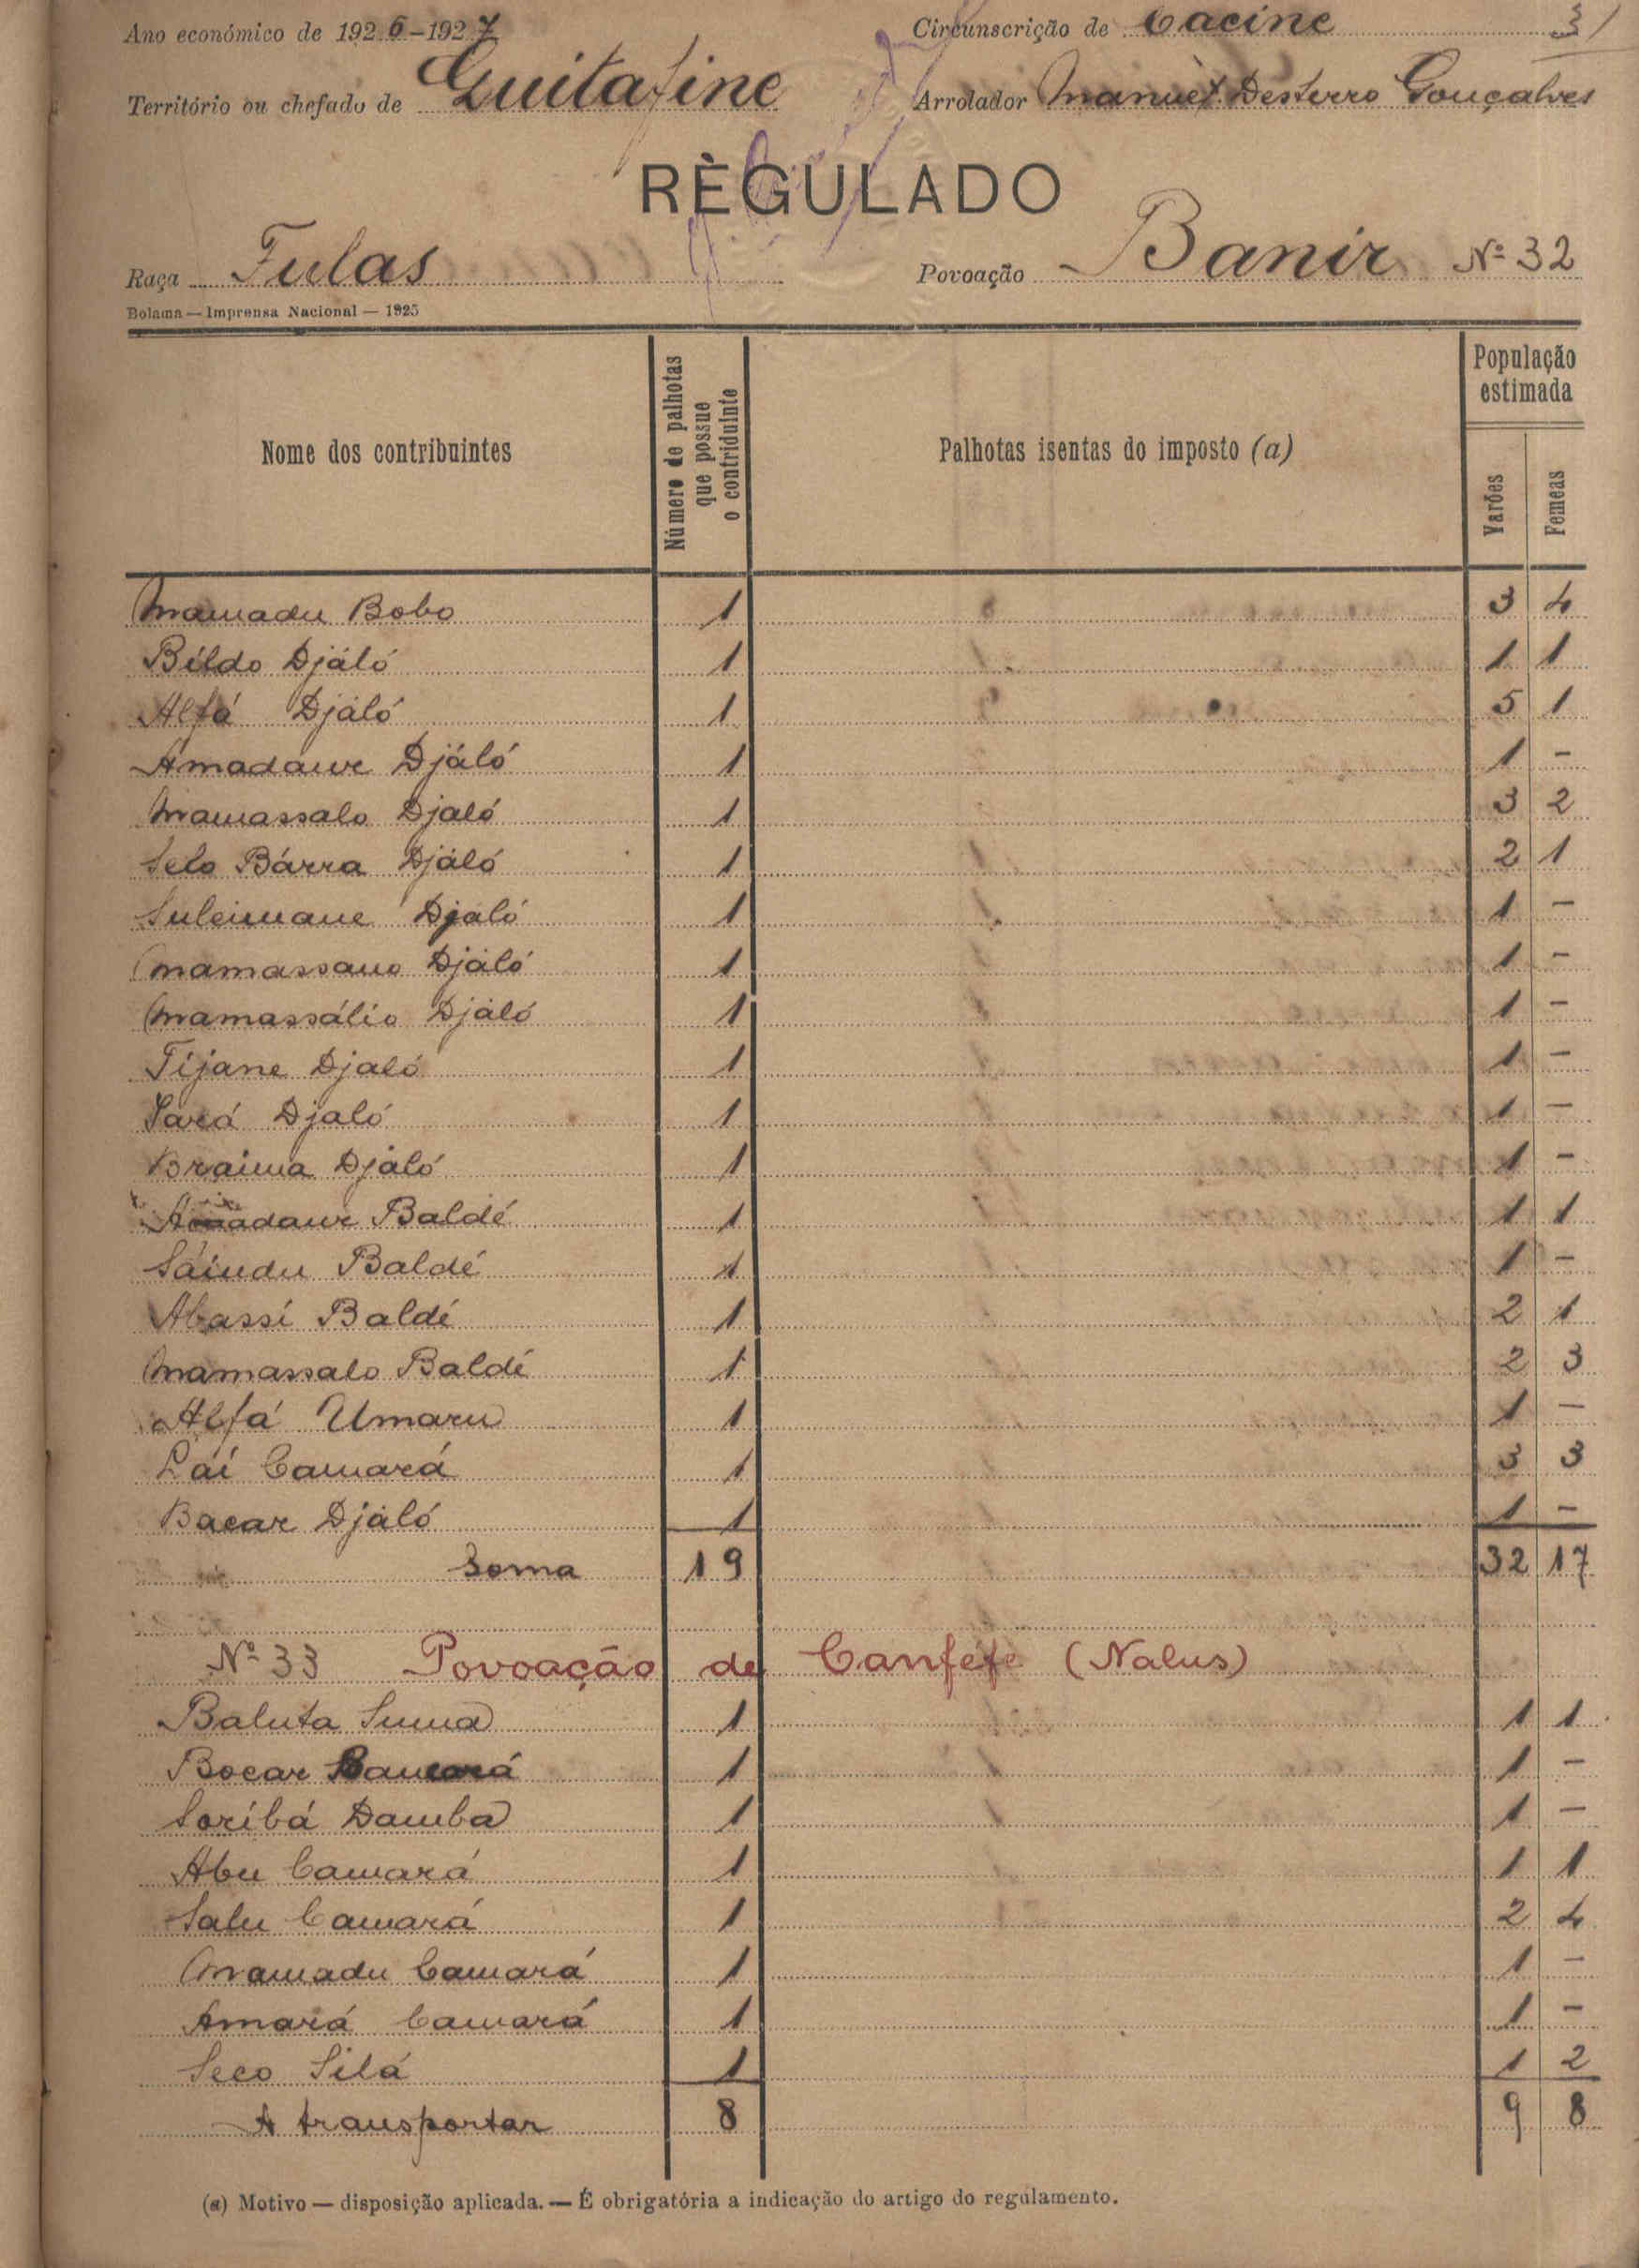 Ano económico de 1926-1927 Circunscrição de Cacine 31
Território ou chefado de Guitafine Arrolador Manuel Desterro Gonçalves
RÈGULADO
Raça Fulas Povoação Banir Nº 32
Bolama — Imprensa Nacional — 1925
Nome dos contribuintes Número de palhotas que possue o contriduinte Palhotas isentas do imposto (a) População estimada Varões Femeas
Mamadu Bobo 1 3 4
Bildo Djáló 1 1 1
Alfá Djáló 1 5 1
Amadauri Djáló 1 1 -
Mamassalo Djaló 1 3 2
Selo Bárra Djáló 1 2 1
Suleimane Djaló 1 1 -
Mamassano Djáló 1 1 -
Mamassálio Djáló 1 1 -
Tijane Djaló 1 1 -
Sará Djaló 1 1 -
Braima Djáló 1 1 -
Amadauri Baldé 1 1 1
Sáindu Baldé 1 1 -
Abassi Baldé 1 2 1
Mamassalo Baldé 1 2 3
Alfá Umaru 1 1 -
Lái Camará 1 3 3
Bacar Djáló 1 1 -
Soma 19 32 17
Nº 33 Povoação de Canféfe (Nalus)
Baluta Suma 1 1 1
Bocar Camará 1 1 -
Soribá Damba 1 1 -
Abu Camará 1 1 1
Salu Camará 1 2 4
Mamadu Camará 1 1 -
Amará Camará 1 1 -
Seco Silá 1 1 2
A transportar 8 9 8
(a) Motivo — disposição aplicada. — É obrigatória a indicação do artigo do regulamento.